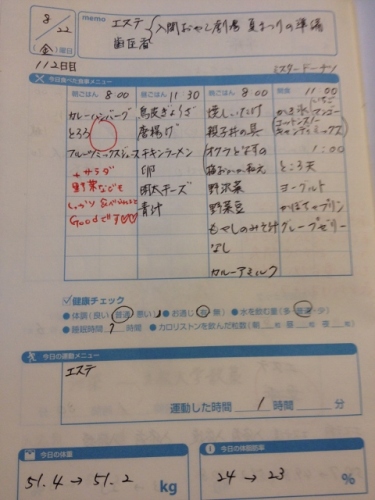 8/22
(金)曜日
memo
エステ
歯医者
入間おやこ劇場 夏まつりの準備
112日目
ミスタードーナツ
今日食べた食事メニュー
朝ごはん 8:00
昼ごはん 11:30
晩ごはん 8:00
間食 11:00
カレーハンバーグ
とろろ
フルーツミックスジュース
+サラダ
野菜なども
しっかり食べられると
Goodです♡♡
鳥皮ぎょうざ
唐揚げ
チキンラーメン
卵
明太チーズ
青汁
焼しいたけ
親子丼の具
オクラとなすの
梅おかか和え
野沢菜
野菜豆
もやしのみそ汁
なし
カルーアミルク
かき氷
いちご
マンゴー
コットンスノー
キャンディミックス
1:00
ところ天
ヨーグルト
かぼちゃプリン
グレープゼリー
健康チェック
●体調(良い・普通・悪い) ●お通じ(有・無) ●水を飲む量(多・普通・少)
●睡眠時間 7 時間 ●カロリストンを飲んだ粒数(朝 粒・昼 粒・夜 粒)
今日の運動メニュー
エステ
運動した時間 1 時間 分
今日の体重
51.4→51.2 kg
今日の体脂肪率
24→23 %